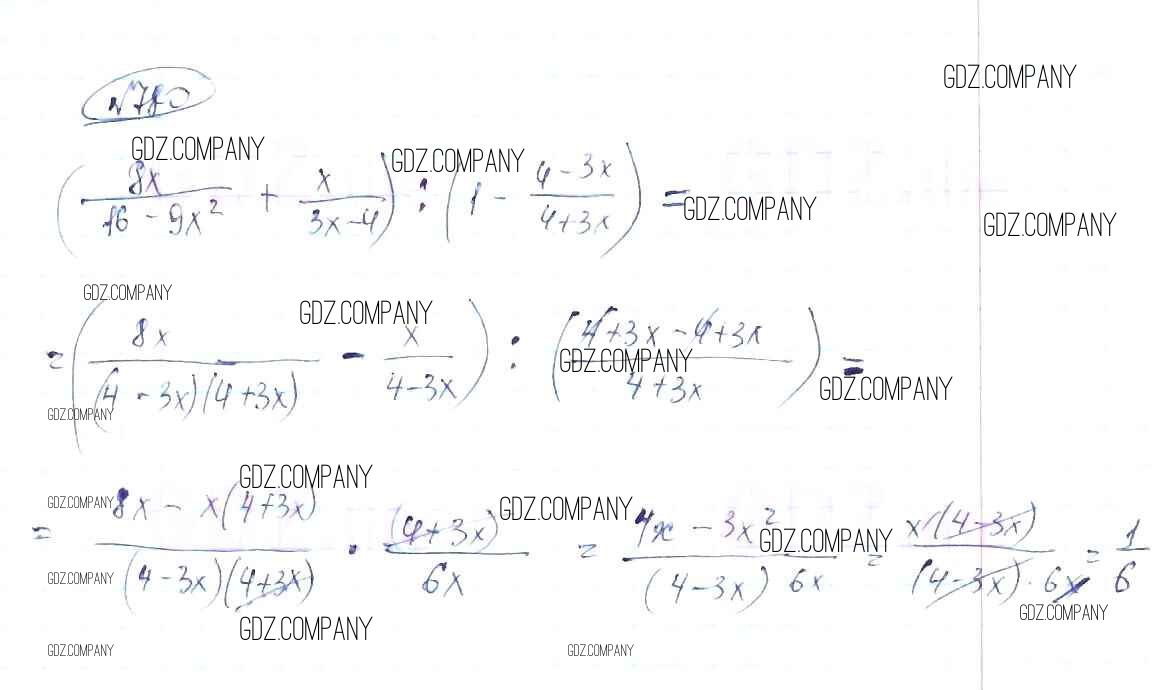 GDZ.COMPANY
№780
GDZ.COMPANY GDZ.COMPANY
(8x/(16 - 9x²) + x/(3x-4)) : (1 - (4-3x)/(4+3x)) =
GDZ.COMPANY GDZ.COMPANY
GDZ.COMPANY GDZ.COMPANY
= (8x/((4-3x)(4+3x)) - x/(4-3x)) : ((4+3x-4+3x)/(4+3x)) =
GDZ.COMPANY GDZ.COMPANY
GDZ.COMPANY
GDZ.COMPANY
GDZ.COMPANY GDZ.COMPANY GDZ.COMPANY
= (8x - x(4+3x))/((4-3x)(4+3x)) · (4+3x)/6x = (4x - 3x²)/((4-3x) 6x) = x(4-3x)/((4-3x)·6x) = 1/6
GDZ.COMPANY GDZ.COMPANY
GDZ.COMPANY
GDZ.COMPANY GDZ.COMPANY